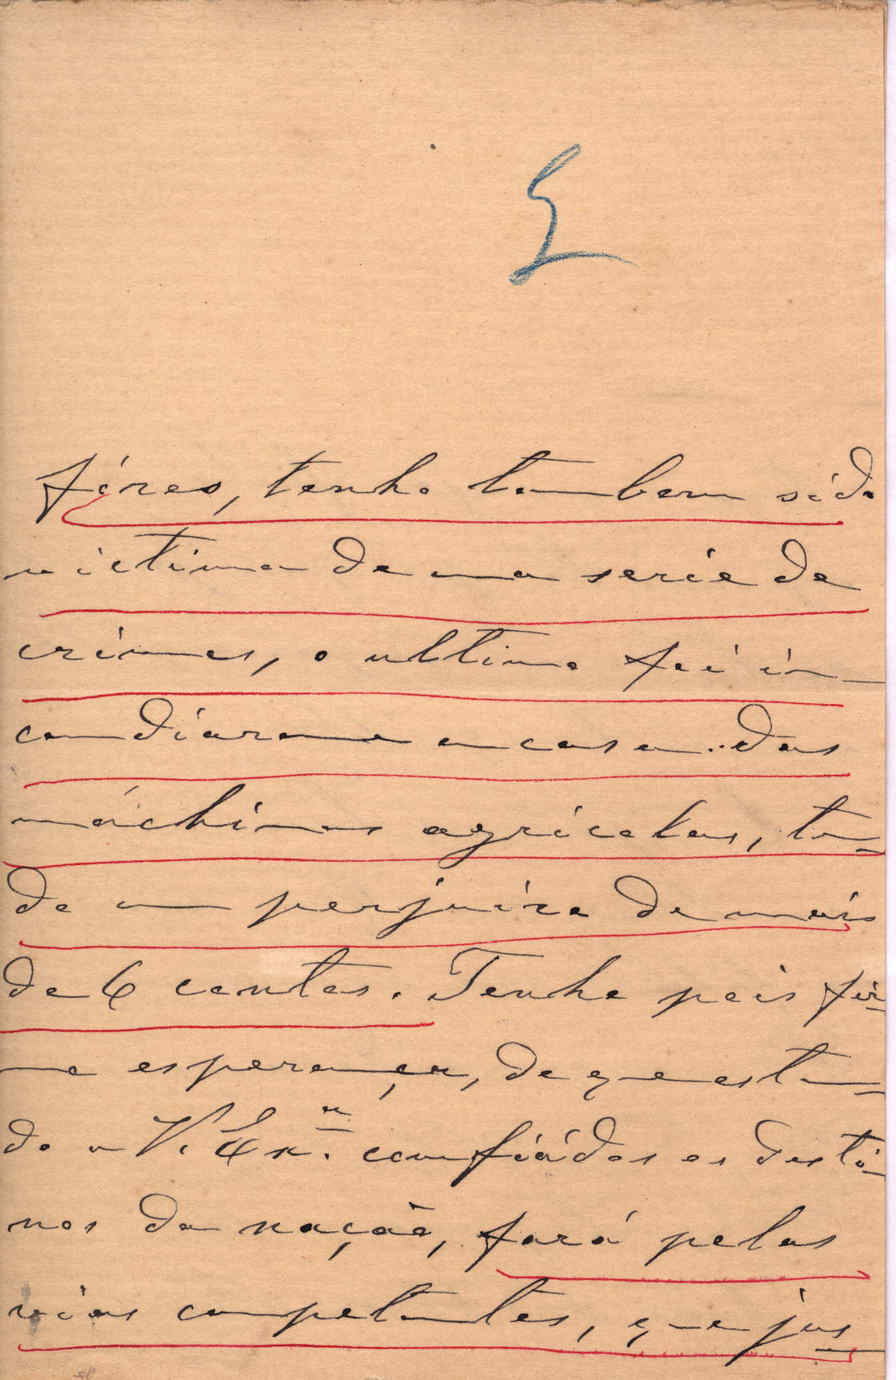 5
féres, tenho tambem sido
victima de uma serie de
crimes, o ultimo foi in-
cendiarem a casa das
máchinas agricolas, to-
do um perjuizo de mais
de 6 contos. Tenho pois fir-
me esperança, de que estan-
do a V. Exª. confiádos os desti-
nos da nação, fará pelas
vias competentes, que jus-